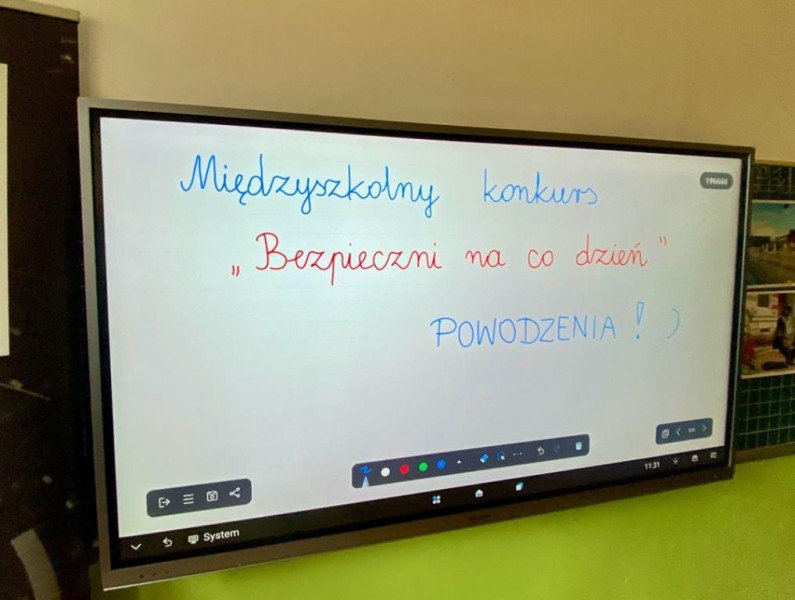 Międzyszkolny konkurs
196666
„Bezpieczni na co dzień”
POWODZENIA ! )
11:31
System